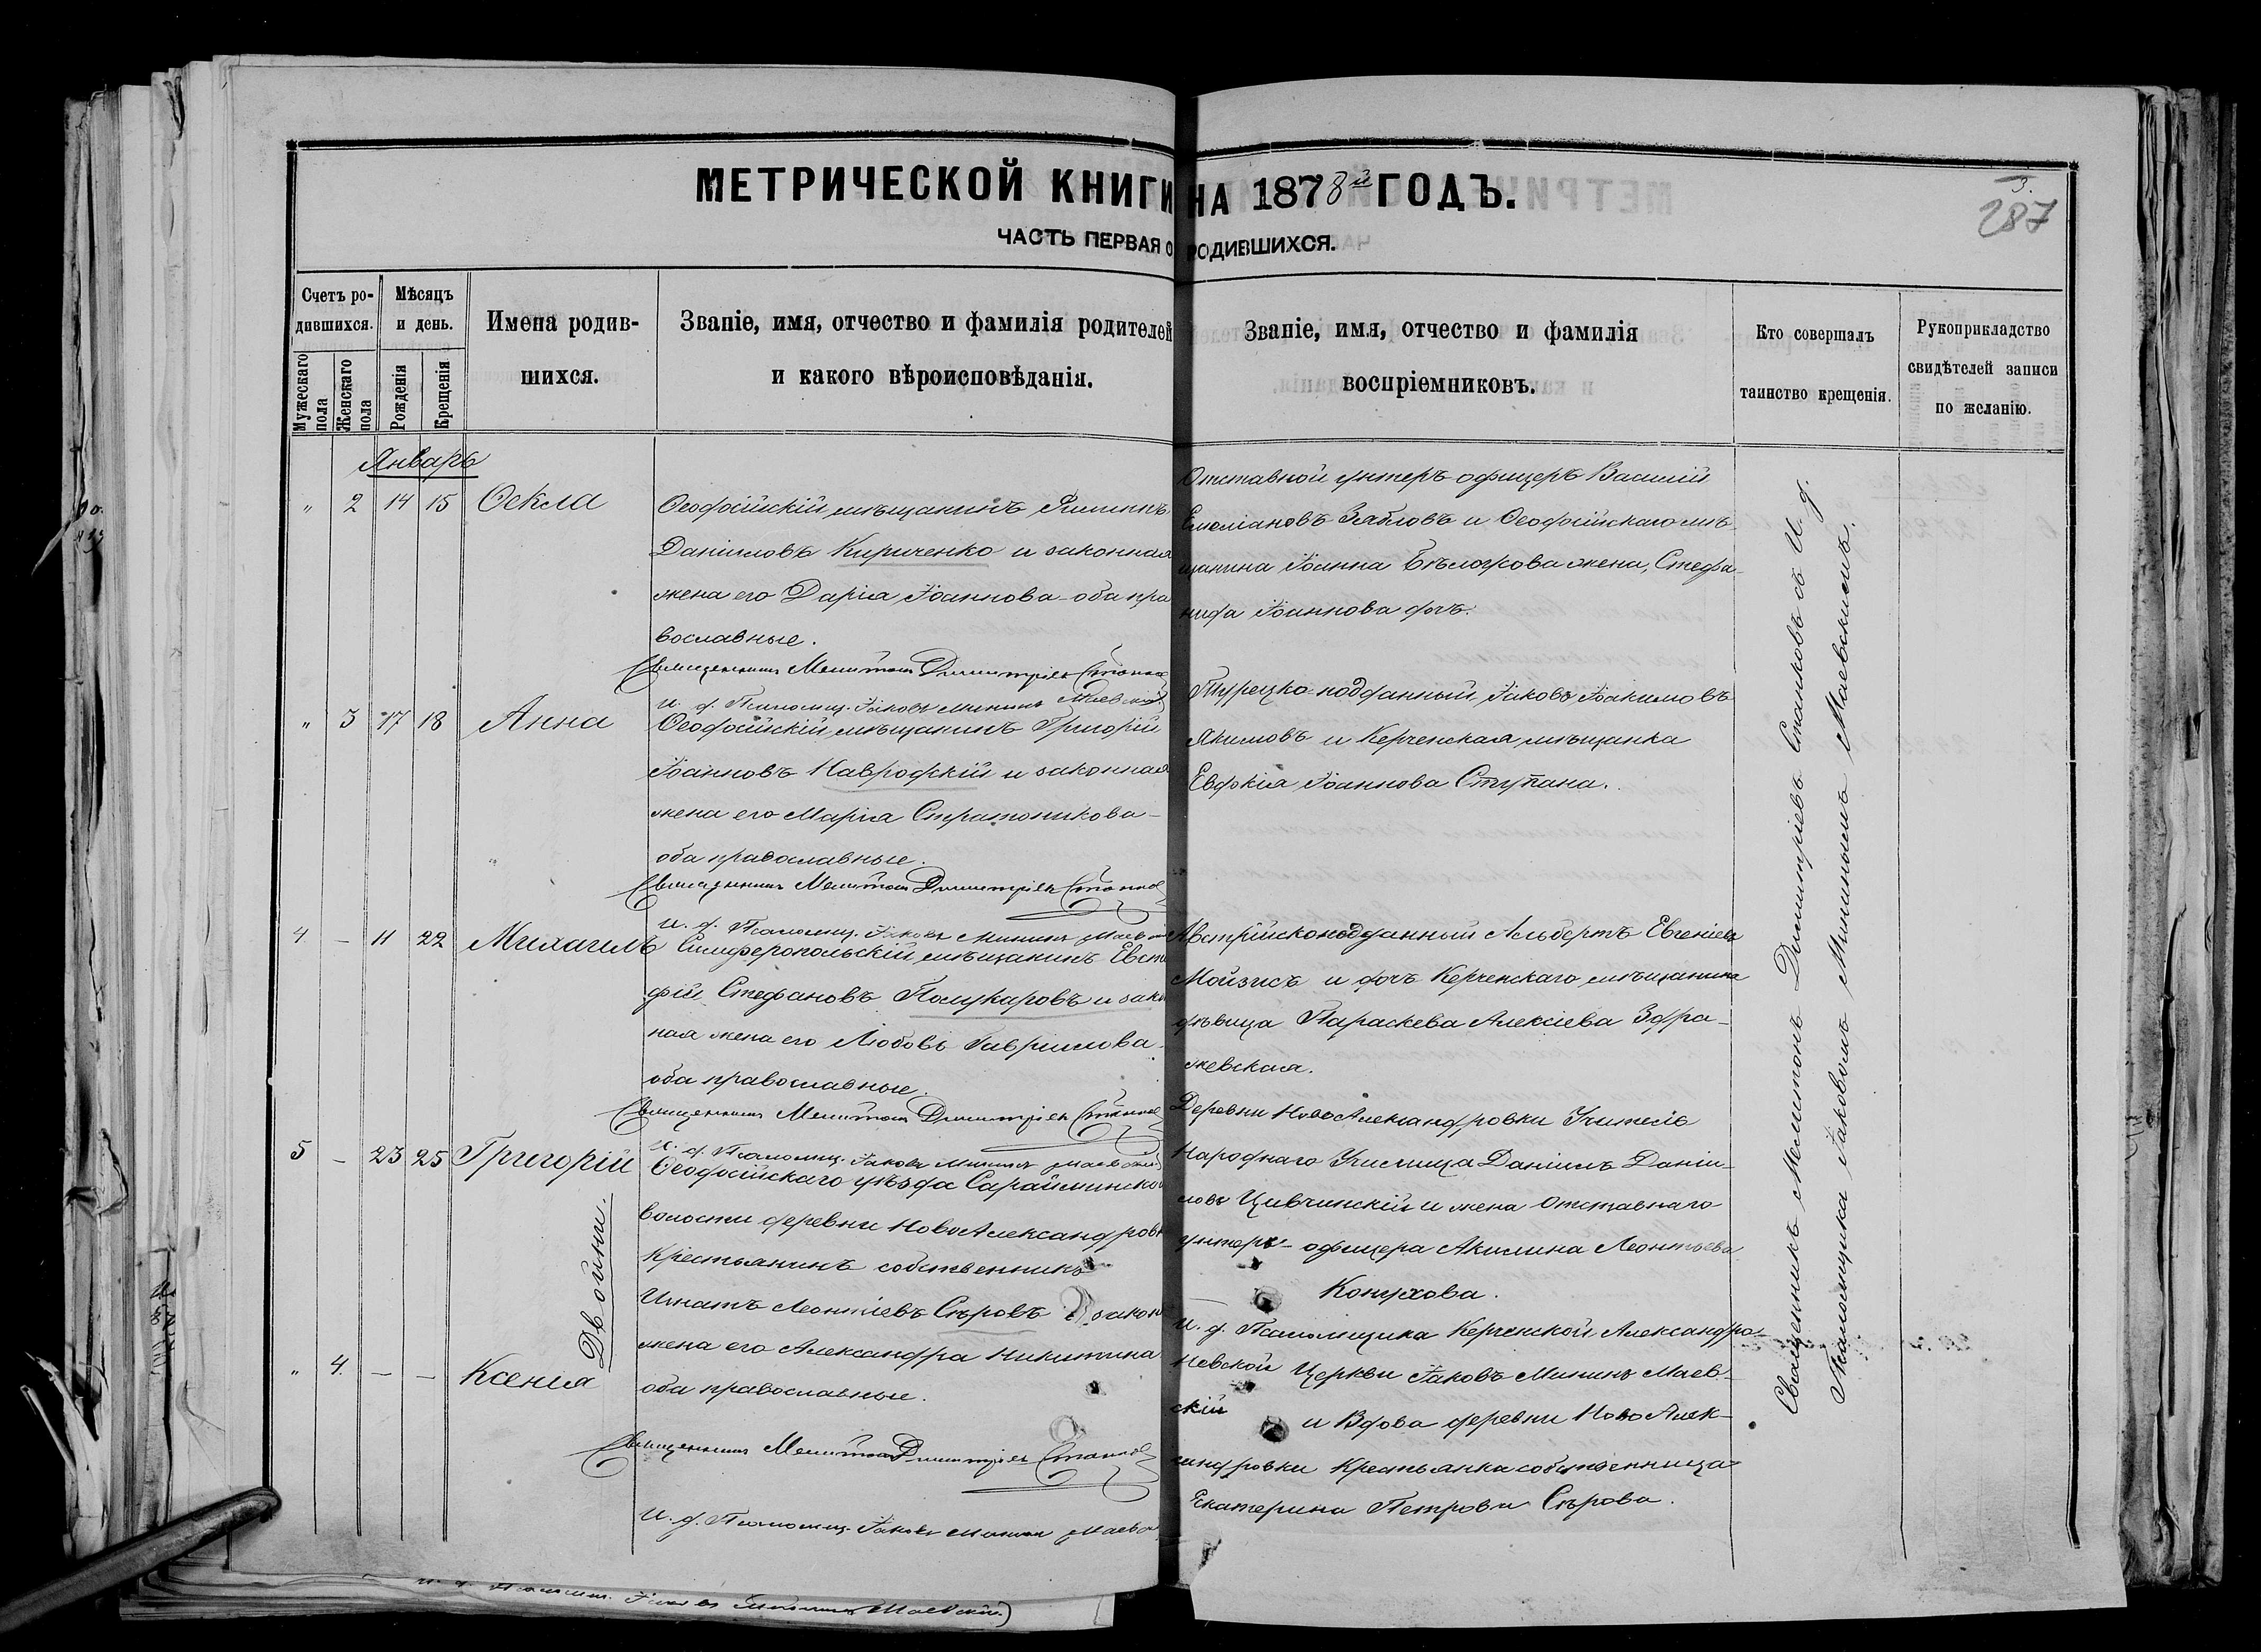 МЕТРИЧЕСКОЙ КНИГИ НА 1878й ГОДЪ.
ЧАСТЬ ПЕРВАЯ О РОДИВШИХСЯ.
3.
287
Счетъ родившихся.
Мужескаго пола
Женскаго пола
Мѣсяцъ и день.
Рожденія
Крещенія
Имена родив-
шихся.
Званіе, имя, отчество и фамилія родителей
и какого вѣроисповѣданія.
Званіе, имя, отчество и фамилія
воспріемниковъ.
Кто совершалъ
таинство крещенія.
Рукоприкладство
свидѣтелей записи
по желанію.
Январь
" 2 14 15 Ѳекла
Ѳеодосійскій мѣщанинъ Филиппъ
Даніиловъ Кириченко и законная
жена его Дарія Іоаннова - оба пра
вославные.
Священникъ Мелитонъ Димитріевъ Станковъ
И. д. Псаломщ. Іаковъ Мининъ Маевскій
Отставной унтеръ офицеръ Василій
Емеліановъ Зябловъ и Ѳеодосійскаго мѣ-
щанина Іоанна Бѣлогрова жена, Стефа-
нида Іоаннова дочь.
" 3 17 18 Анна
Ѳеодосійскій мѣщанинъ Григорій
Іоанновъ Навродскій и законная
жена его Марія Стратоникова -
оба православные.
Священникъ Мелитонъ Димитріевъ Станковъ
И. д. Псаломщ. Іаковъ Мининъ Маевскій
Турецко-подданный Іаковъ Іоакимовъ
Якимовъ и Керченская мѣщанка
Евдокія Іоаннова Ступана.
4 - 11 22 Михаилъ
Симферопольскій мѣщанинъ Евста
фій Стефановъ Поликаровъ и закон
ная жена его Любовь Гавриилова -
оба православные.
Священникъ Мелитонъ Димитріевъ Станковъ
И. д. Псаломщ. Іаковъ Мининъ Маевскій
Австрійскоподданный Альбертъ Евгеніевъ
Мойзисъ и дочь Керченскаго мѣщанина
дѣвица Параскева Алексіева Здра-
жевская.
5 - 23 25 Григорій
Двойни
Ѳеодосійскаго уѣзда Сарайминской
волости деревни НовоАлександровки
Крестьянинъ собственникъ
Игнатъ Леонтіевъ Сѣровъ и закон
жена его Александра Никитина
оба православные.
Деревни НовоАлександровки Учитель
Народнаго Училища Даніилъ Даніи-
ловъ Цивчинскій и жена Отставнаго
унтеръ-офицера Акилина Леонтьева
Конухова.
" 4. - - Ксенія
Священникъ Мелитонъ Димитріевъ Станковъ
И. д. Псаломщ. Іаковъ Мининъ Маевскій
И. д. Псаломщика Керченской Александро-
Невской Церкви Іаковъ Мининъ Маев-
скій и Вдова деревни НовоАлек-
сандровки Крестьянка собственница
Екатерина Петрова Сѣрова.
Священникъ Мелитонъ Димитріевъ Станковъ съ И. д.
Псаломщика Іаковомъ Мининымъ Маевскимъ.
И. д. Псаломщ. Іаковъ Мининъ Маевскій